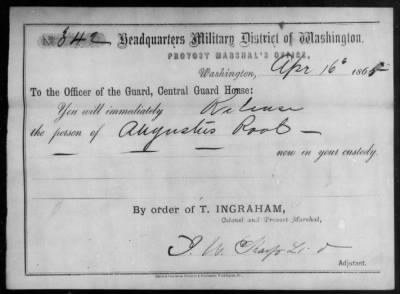 No. 342 Headquarters Military District of Washington,
PROVOST MARSHAL'S OFFICE,
Washington, Apr 16" 1865
To the Officer of the Guard, Central Guard House:
You will immediately Release
the person of Augustus Root —
now in your custody.
By order of T. INGRAHAM,
Colonel and Provost Marshal,
Adjutant.